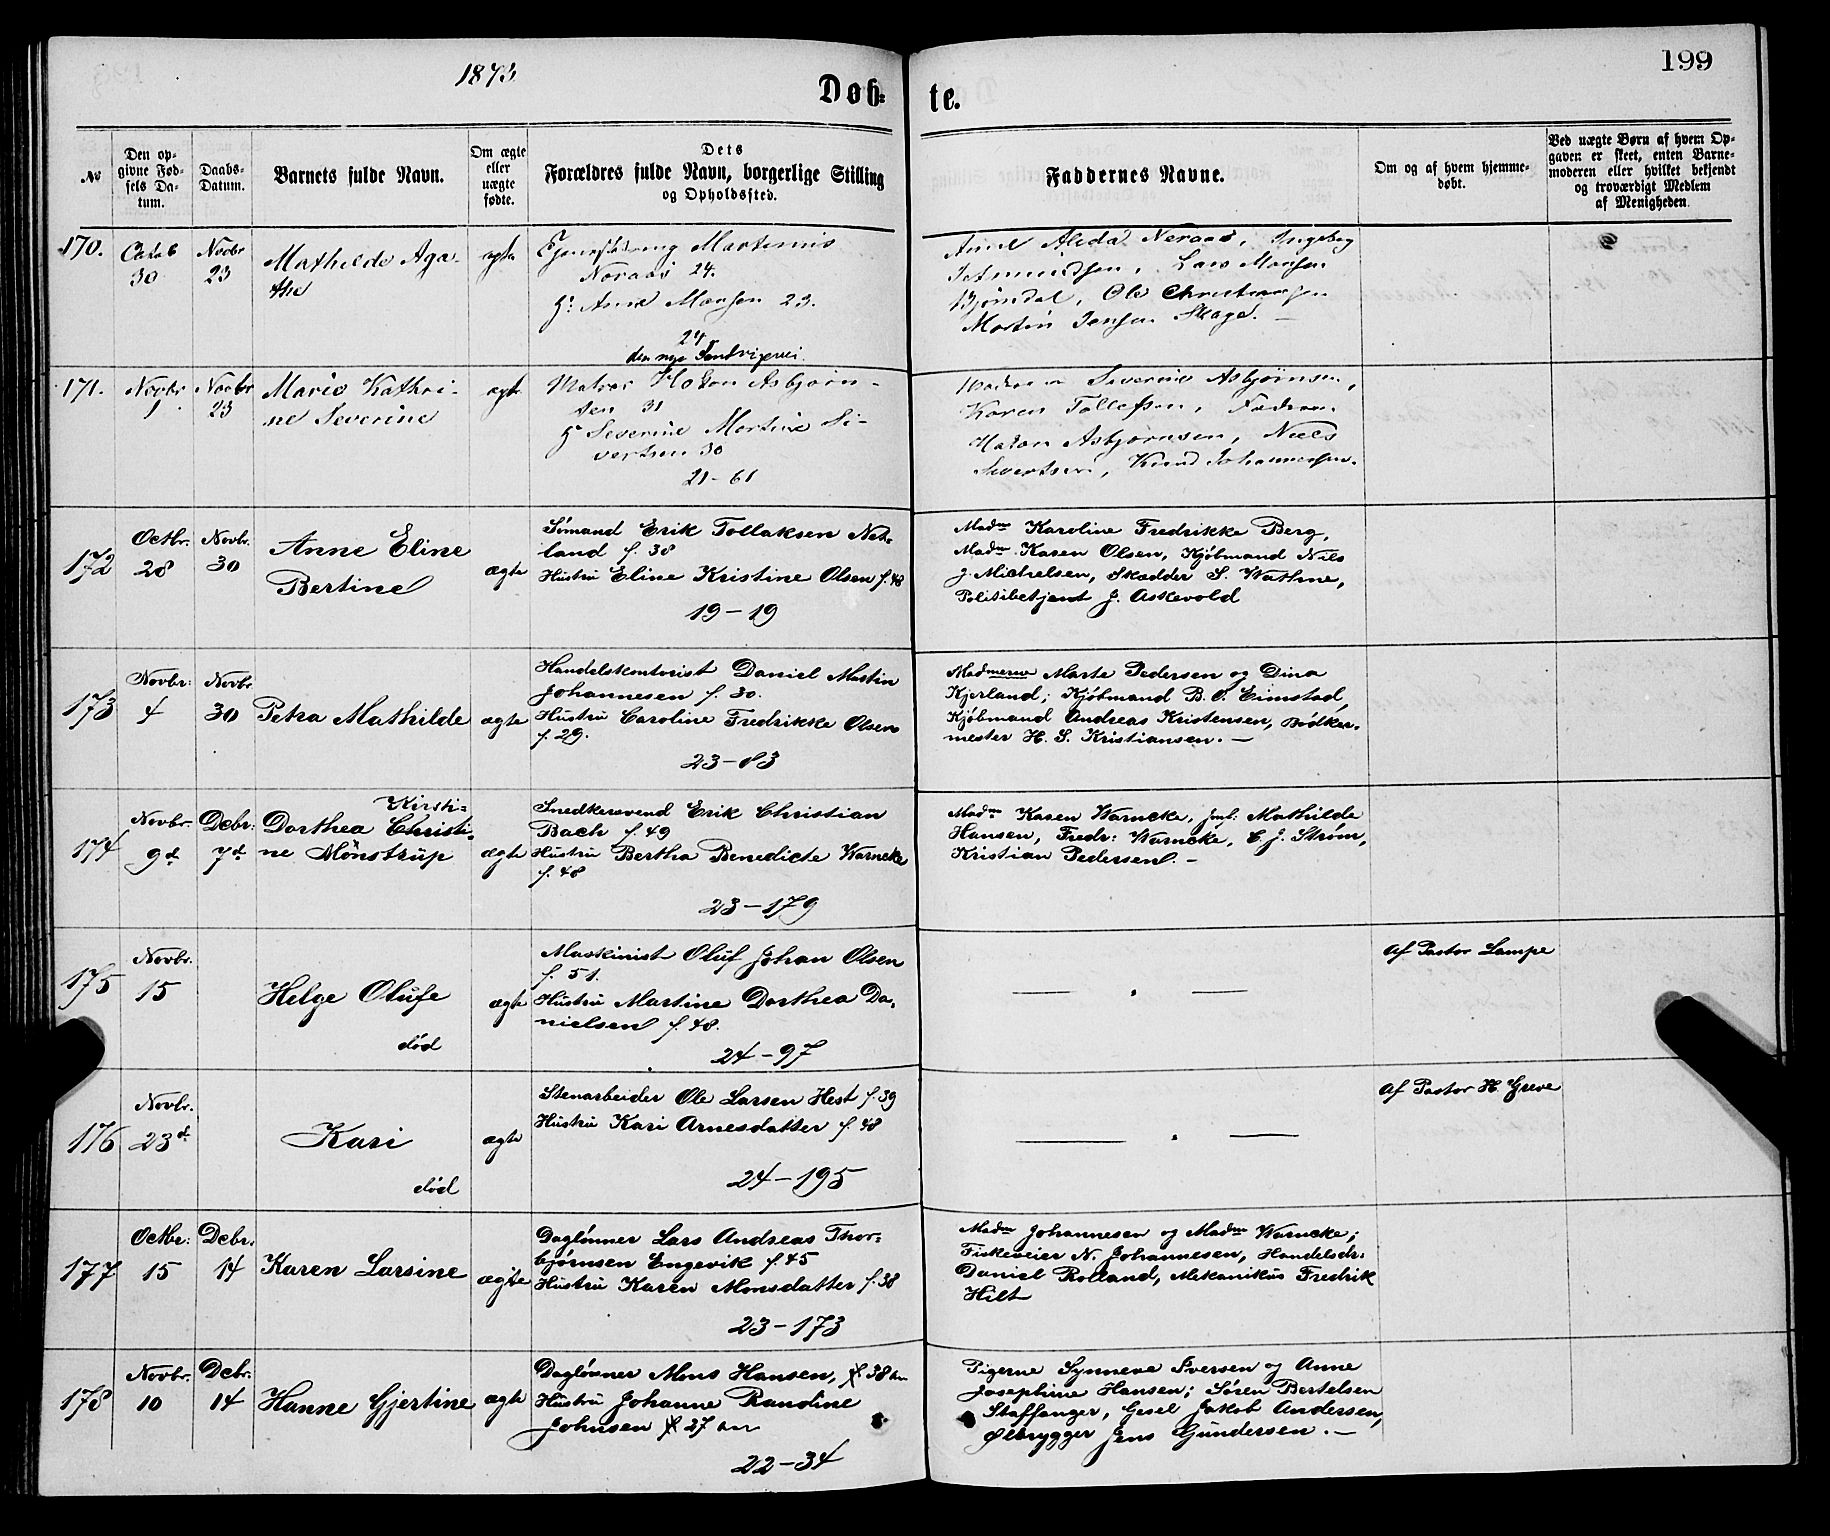 1873
Døb-
te.
199
No
Den op-
givne Fød-
sels Da-
tum.
Daabs-
Datum.
Barnets fulde Navn.
Om ægte
eller
uægte
fødte.
Dets
Forældres fulde Navn, borgerlige Stilling
og Opholdssted.
Faddernes Navne.
Om og af hvem hjemme-
døbt.
Ved uægte Børn af hvem Op-
gaven er skeet, enten Barne-
moderen eller hvilket bekjendt
og troværdigt Medlem
af Menigheden.
170.
Octob
30
Novbr
23
Mathilde Aga-
the
ægte
Martinus
Neraas 24.
H: Anne Monsen 23.
24
den nye Sandvigsvei.
Anne Alida Neraas, Ingebog
Lars Monsen
Bjørndal, Ole Christiansen
Martin Jensen Skage. —
171.
Novbr
1
Novbr
23
Marie Kathri-
ne Severine
ægte
Matros Hakon Asbjørn-
sen 31
H: Severine Martine Si-
vertsen 30
21-61
Severine Asbjørnsen,
Karen Tollefsen,
Hakon Asbjørnsen, Niels
Sivertsen, Knud Johannessen.
172
Octbr.
28
Novbr.
30
Anne Eline
Bertine
ægte
Sømand Erik Tollaksen Net-
land f. 38
Hustru Eline Kristine Olsen f. 48
19-19
Madm Karoline Fredrikke Berg,
Madm Karen Olsen, Kjøbmand Nils
J. Michelsen, Skrædder S. Wathne,
Politibetjent J. Askevold
173
Novbr:
4
Novbr.
30
Petra Mathilde
ægte
Handelskontorist Daniel Martin
Johannesen f. 30.
Hustru Caroline Fredrikke Olsen
f. 29.
23-83
Madmerne Marte Pedersen og Dina
Kjerland; Kjøbmand B. O. Eimstad,
Kjøbmand Andreas Kristensen, Bødker-
mester H. S. Kristiansen. —
174
Novbr.
9d
Debr:
7d
Kirsti=
Dorthea Christi-
ne Mönstrup
ægte
Snedkersvend Erik Christian
Bach f. 49
Hustru Bertha Benedicte Warncke
f. 48
23-179
Madm Karen Warncke, Jmf: Mathilde
Hansen, Fredr: Warncke, C. J. Strøm,
Kristian Pedersen. —
175
Novbr.
15
Helge Olufe
død
ægte
Maskinist Oluf Johan Olsen
f. 51.
Hustru Martine Dorthea Da-
nielsen f. 48.
24-97
— . —
Af Pastor Lampe
176
Novbr.
23d
Kari
død
ægte
Stenarbeider Ole Larsen Hest f. 39
Hustru Kari Arnesdatter f. 48
24-195
— . —
Af Pastor H Greve
177
Octbr:
15
Debr:
14
Karen Larsine
ægte
Daglønner Lars Andreas Thor-
bjørnsen Engevik f. 45
Hustru Karen Monsdatter f. 38
23-173
Madm Johannesen og Madm Warncke;
Fiskeveier N. Johannesen, Handelsdr:
Daniel Rolland, Mekanikus Fredrik
Hilt
178
Novbr.
10
Debr:
14
Hanne Gjertine
ægte
Daglønner Mons Hansen, f 38 an
Hustru Johanne Randine
Johnsen f 27 an
22-34
Pigerne Synneve Iversen og Anne
Josephine Hansen; Søren Bertelsen
Staffanger, Gesel Jakob Andersen,
Ølbrygger Jens Gundersen. —